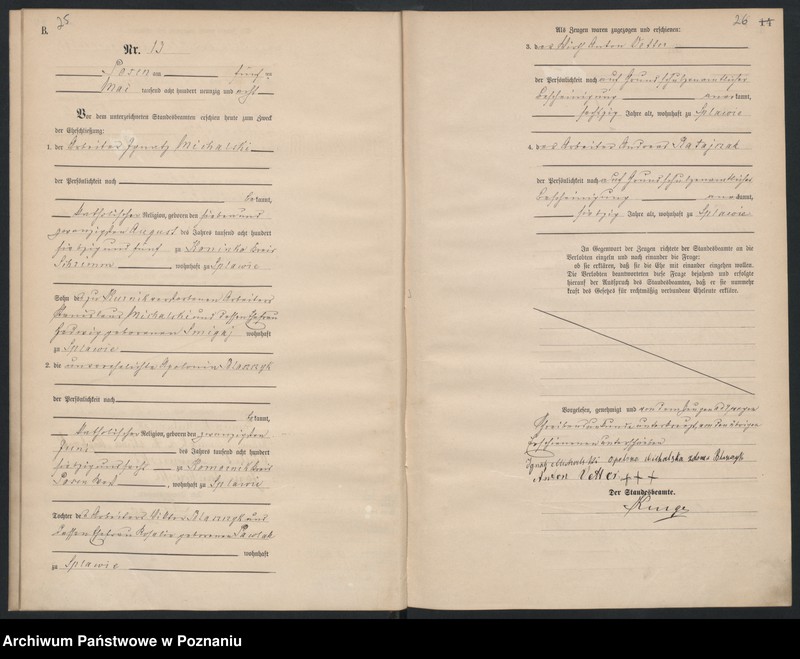 B.
25
Nr. 13
Posen am fünf ten
Mai tausend acht hundert neunzig und acht
Vor dem unterzeichneten Standesbeamten erschien heute zum Zweck
der Eheschließung:
1. der Arbeiter Ignatz Michalski
der Persönlichkeit nach
be kannt,
katholischer Religion, geboren den sieben und
zwanzigsten August des Jahres tausend acht hundert
siebzig und fünf zu Kaminke Kreis
Schrimm, wohnhaft zu Splawie
Sohn des zu Kurnik verstorbenen Arbeiters
Stanislaus Michalski und dessen Ehefrau
Hedwig geborenen Smigaj wohnhaft
zu Splawie
2. die unverehelichte Apolonia Blaszyk
der Persönlichkeit nach
be kannt,
katholischer Religion, geboren den zwanzigsten
Juni des Jahres tausend acht hundert
siebzig und sechs zu Kreis
Posen Ost, wohnhaft zu Splawie
Tochter des Arbeiters Viktor Blaszyk und
dessen Ehefrau Rosalie geborenen Pawlak
wohnhaft
zu Splawie
26 11
Als Zeugen waren zugezogen und erschienen:
3. der Wirth Anton Vetter
der Persönlichkeit nach auf Grund schulzenamtlicher
Bescheinigung anerkannt,
sechzig Jahre alt, wohnhaft zu Splawie
4. der Arbeiter Andreas Ratajczak
der Persönlichkeit nach auf Grund schulzenamtlicher
Bescheinigung anerkannt,
siebzig Jahre alt, wohnhaft zu Splawie
In Gegenwart der Zeugen richtete der Standesbeamte an die
Verlobten einzeln und nach einander die Frage:
ob sie erklären, daß sie die Ehe mit einander eingehen wollen.
Die Verlobten beantworteten diese Frage bejahend und erfolgte
hierauf der Ausspruch des Standesbeamten, daß er sie nunmehr
kraft des Gesetzes für rechtmäßig verbundene Eheleute erkläre.
Vorgelesen, genehmigt und von dem Zeugen
Schreibens unkundig unterkreuzt, von den übrigen
Erschienenen unterschrieben
Ignatz Michalski Opolonia Michalska z domu Blaszyk
Anton Vetter +++
Der Standesbeamte.
Archiwum Państwowe w Poznaniu